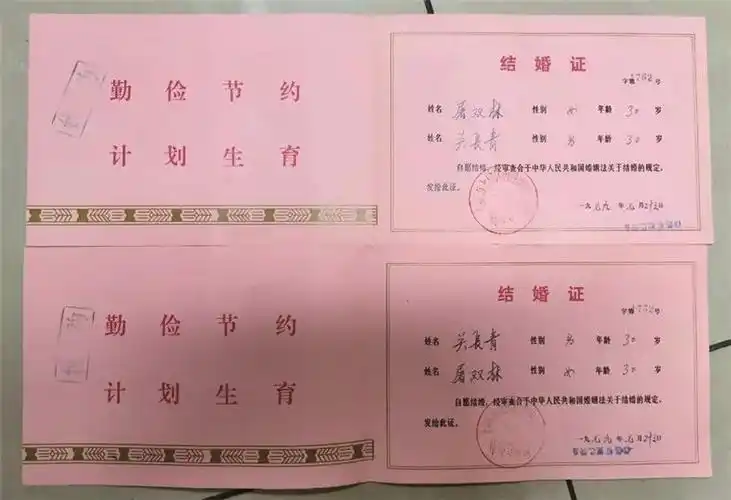 勤俭节约
计划生育
结婚证
字第1762号
姓名 屠双林 性别 女 年龄 30 岁
姓名 关长青 性别 男 年龄 30 岁
自愿结婚,经审查合于中华人民共和国婚姻法关于结婚的规定,
发给此证。
一九七九年元月22日
勤俭节约
计划生育
结婚证
字第1762号
姓名 关长青 性别 男 年龄 30 岁
姓名 屠双林 性别 女 年龄 30 岁
自愿结婚,经审查合于中华人民共和国婚姻法关于结婚的规定,
发给此证。
一九七九年元月22日